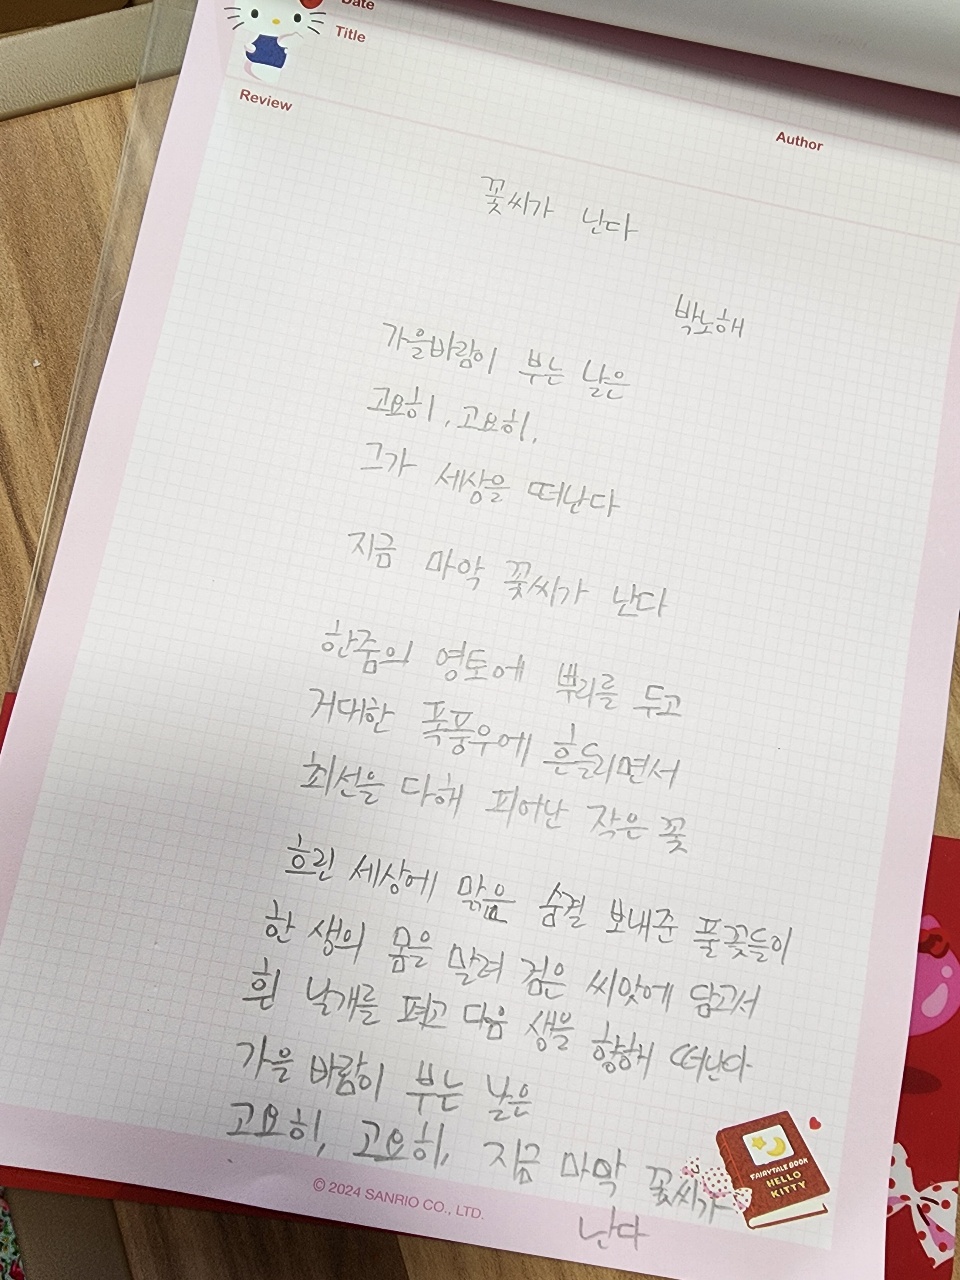 Date
Title
Review
Author
꽃씨가 난다
박노해
가을바람이 부는 날은
고요히, 고요히,
그가 세상을 떠난다
지금 마악 꽃씨가 난다
한줌의 영토에 뿌리를 두고
거대한 폭풍우에 흔들리면서
최선을 다해 피어난 작은 꽃
흐린 세상에 맑은 숨결 보내준 풀꽃들이
한 생의 몸을 말려 검은 씨앗에 담고서
흰 날개를 펴고 다음 생을 향해 떠난다
가을 바람이 부는 날은
고요히, 고요히, 지금 마악 꽃씨가
난다
FAIRYTALE BOOK
HELLO
KITTY
© 2024 SANRIO CO., LTD.